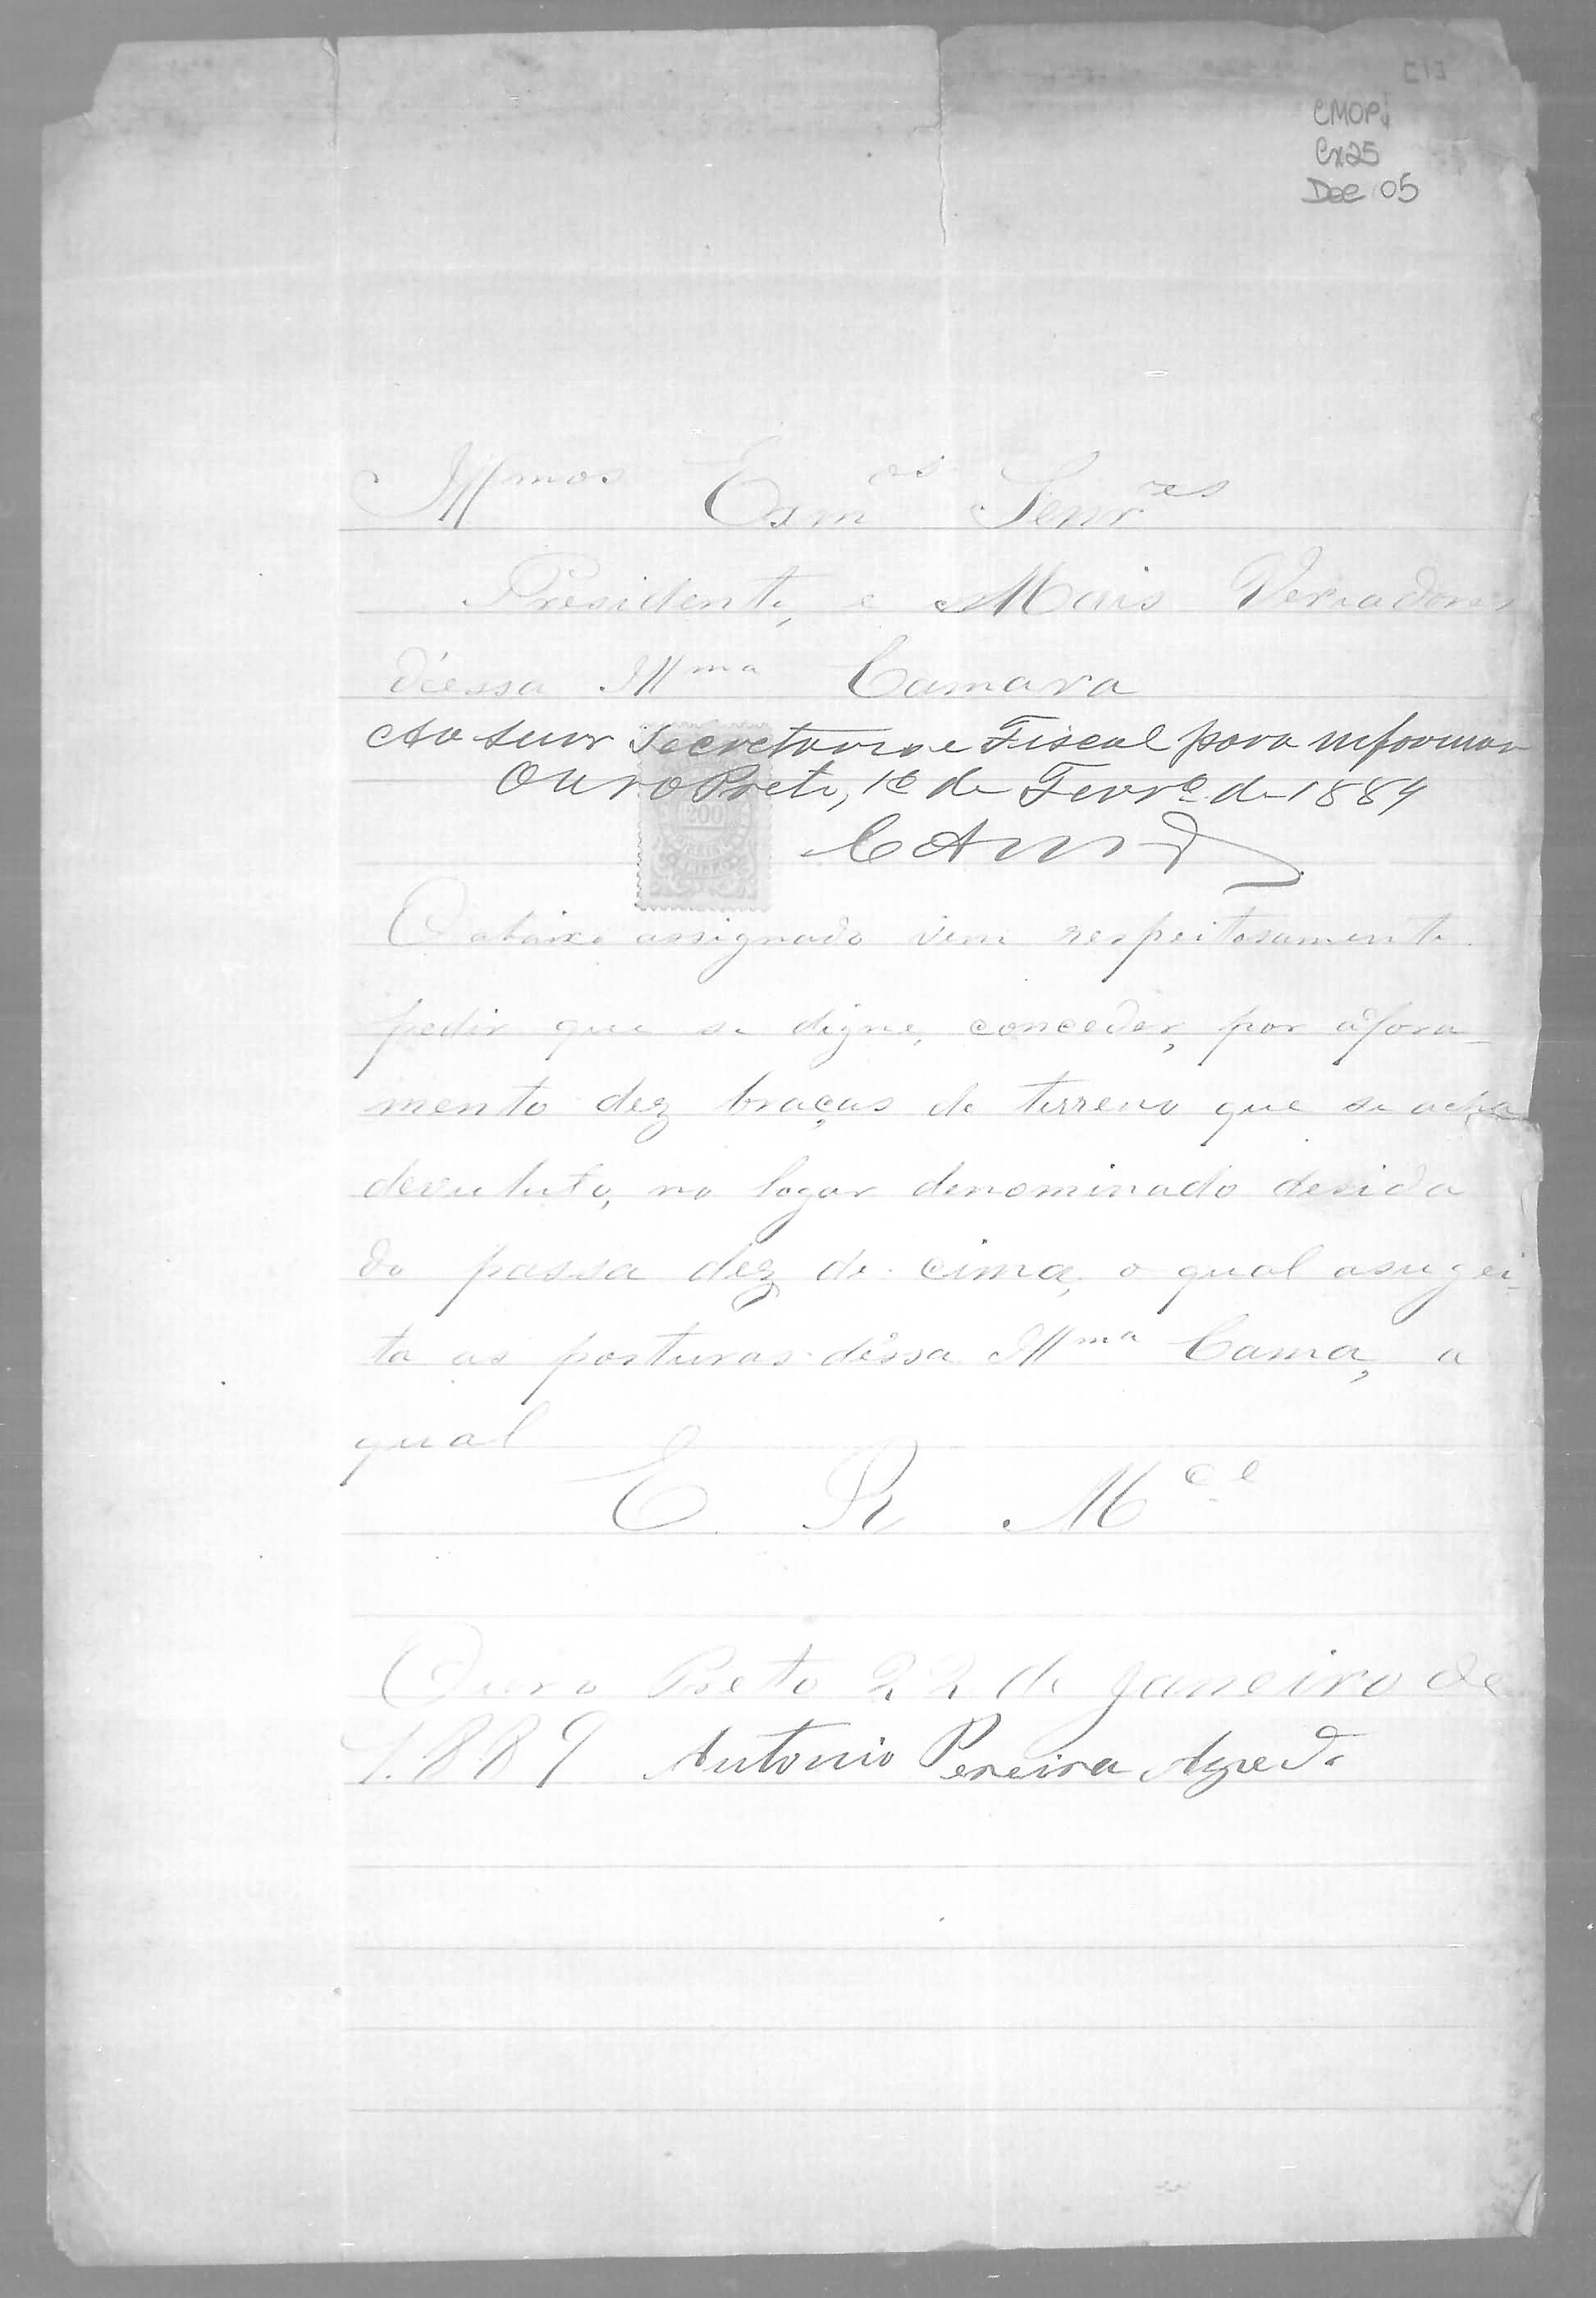 CMOP
Cx25
Doc 05
Illmos Exmos Senres
Presidente, e Mais Veriadores
d'essa Illma Camara
Ao Senr Secretario e Fiscal para informar
Ouro Preto, 1º de Fevrº de 1889
200
O abaixo assignado vem respeitosamente
pedir que se digne, conceder, por afora-
mento dez braças de terreno que se acha
devuluto, no logar denominado decida
do passa dez de cima, o qual asugei-
ta as posturas dessa Illma Cama, a
qual
E. R. Mce
Ouro Preto 22 de Janeiro de
1889 Antonio Pereira Azedo